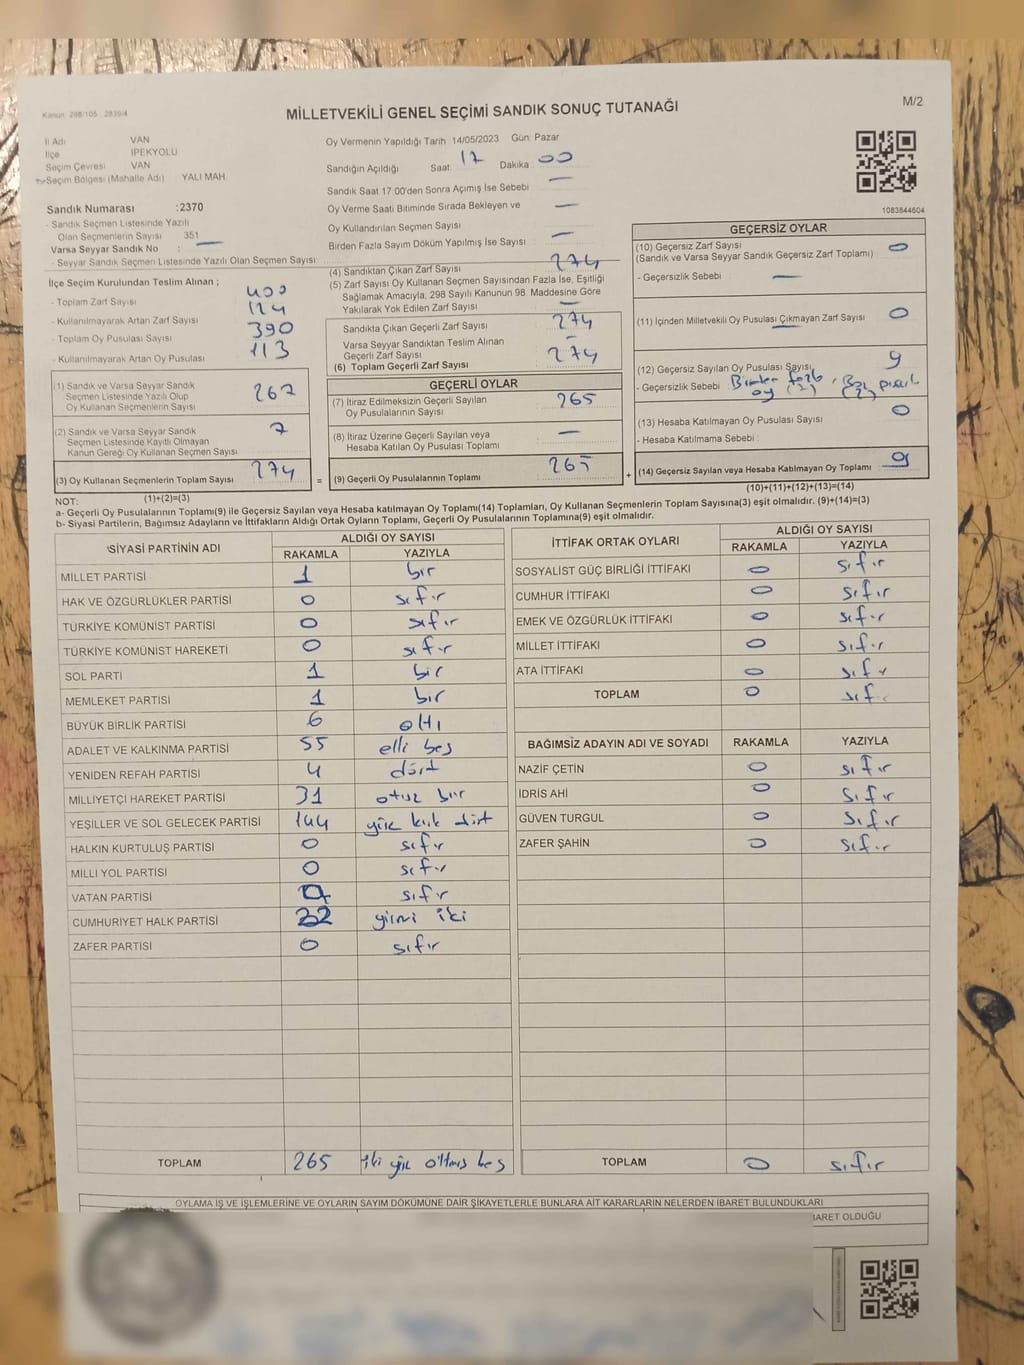 Kanun: 298/105 , 2839/4
MİLLETVEKİLİ GENEL SEÇİMİ SANDIK SONUÇ TUTANAĞI
M/2
İl Adı VAN
İlçe İPEKYOLU
Seçim Çevresi VAN
Seçim Bölgesi (Mahalle Adı) YALI MAH.
Sandık Numarası :2370
- Sandık Seçmen Listesinde Yazılı
Olan Seçmenlerin Sayısı 351
Varsa Seyyar Sandık No : —
- Seyyar Sandık Seçmen Listesinde Yazılı Olan Seçmen Sayısı
Oy Vermenin Yapıldığı Tarih 14/05/2023 Gün: Pazar
Sandığın Açıldığı Saat: 17 Dakika 00
Sandık Saat 17:00'den Sonra Açımış İse Sebebi —
Oy Verme Saati Bitiminde Sırada Bekleyen ve —
Oy Kullandırılan Seçmen Sayısı
Birden Fazla Sayım Döküm Yapılmış İse Sayısı —
1083844604
İlçe Seçim Kurulundan Teslim Alınan ;
- Toplam Zarf Sayısı 400
- Kullanılmayarak Artan Zarf Sayısı 124
- Toplam Oy Pusulası Sayısı 390
- Kullanılmayarak Artan Oy Pusulası 113
(1) Sandık ve Varsa Seyyar Sandık
Seçmen Listesinde Yazılı Olup
Oy Kullanan Seçmenlerin Sayısı 267
(2) Sandık ve Varsa Seyyar Sandık
Seçmen Listesinde Kayıtlı Olmayan
Kanun Gereği Oy Kullanan Seçmen Sayısı 7
(3) Oy Kullanan Seçmenlerin Toplam Sayısı 274
(1)+(2)=(3)
(4) Sandıktan Çıkan Zarf Sayısı 274
(5) Zarf Sayısı Oy Kullanan Seçmen Sayısından Fazla İse, Eşitliği
Sağlamak Amacıyla, 298 Sayılı Kanunun 98. Maddesine Göre
Yakılarak Yok Edilen Zarf Sayısı —
Sandıkta Çıkan Geçerli Zarf Sayısı 274
Varsa Seyyar Sandıktan Teslim Alınan
Geçerli Zarf Sayısı —
(6) Toplam Geçerli Zarf Sayısı 274
GEÇERLİ OYLAR
(7) İtiraz Edilmeksizin Geçerli Sayılan
Oy Pusulalarının Sayısı 265
(8) İtiraz Üzerine Geçerli Sayılan veya
Hesaba Katılan Oy Pusulası Toplamı —
= (9) Geçerli Oy Pusulalarının Toplamı 265 +
GEÇERSİZ OYLAR
(10) Geçersiz Zarf Sayısı 0
(Sandık ve Varsa Seyyar Sandık Geçersiz Zarf Toplamı)
- Geçersizlik Sebebi —
(11) İçinden Milletvekili Oy Pusulası Çıkmayan Zarf Sayısı 0
(12) Geçersiz Sayılan Oy Pusulası Sayısı 9
- Geçersizlik Sebebi
(13) Hesaba Katılmayan Oy Pusulası Sayısı 0
- Hesaba Katılmama Sebebi :
(14) Geçersiz Sayılan veya Hesaba Katılmayan Oy Toplamı 9
(10)+(11)+(12)+(13)=(14)
NOT:
a- Geçerli Oy Pusulalarının Toplamı(9) ile Geçersiz Sayılan veya Hesaba katılmayan Oy Toplamı(14) Toplamları, Oy Kullanan Seçmenlerin Toplam Sayısına(3) eşit olmalıdır. (9)+(14)=(3)
b- Siyasi Partilerin, Bağımsız Adayların ve İttifakların Aldığı Ortak Oyların Toplamı, Geçerli Oy Pusulalarının Toplamına(9) eşit olmalıdır.
SİYASİ PARTİNİN ADI ALDIĞI OY SAYISI
RAKAMLA YAZIYLA
MİLLET PARTİSİ 1 bir
HAK VE ÖZGÜRLÜKLER PARTİSİ 0 sıfır
TÜRKİYE KOMÜNİST PARTİSİ 0 sıfır
TÜRKİYE KOMÜNİST HAREKETİ 0 sıfır
SOL PARTİ 1 bir
MEMLEKET PARTİSİ 1 bir
BÜYÜK BİRLİK PARTİSİ 6 altı
ADALET VE KALKINMA PARTİSİ 55 elli beş
YENİDEN REFAH PARTİSİ 4 dört
MİLLİYETÇİ HAREKET PARTİSİ 31 otuz bir
YEŞİLLER VE SOL GELECEK PARTİSİ 144 yüz kırk dört
HALKIN KURTULUŞ PARTİSİ 0 sıfır
MİLLİ YOL PARTİSİ 0 sıfır
VATAN PARTİSİ 0 sıfır
CUMHURİYET HALK PARTİSİ 22 yirmi iki
ZAFER PARTİSİ 0 sıfır
TOPLAM 265 iki yüz altmış beş
İTTİFAK ORTAK OYLARI ALDIĞI OY SAYISI
RAKAMLA YAZIYLA
SOSYALİST GÜÇ BİRLİĞİ İTTİFAKI 0 sıfır
CUMHUR İTTİFAKI 0 sıfır
EMEK VE ÖZGÜRLÜK İTTİFAKI 0 sıfır
MİLLET İTTİFAKI 0 sıfır
ATA İTTİFAKI 0 sıfır
TOPLAM 0 sıf.
BAĞIMSIZ ADAYIN ADI VE SOYADI RAKAMLA YAZIYLA
NAZİF ÇETİN 0 sıfır
İDRİS AHİ 0 sıfır
GÜVEN TURGUL 0 sıfır
ZAFER ŞAHİN 0 sıfır
TOPLAM 0 sıfır
OYLAMA İŞ VE İŞLEMLERİNE VE OYLARIN SAYIM DÖKÜMÜNE DAİR ŞİKAYETLERLE BUNLARA AİT KARARLARIN NELERDEN İBARET BULUNDUKLARI
BARET OLDUĞU